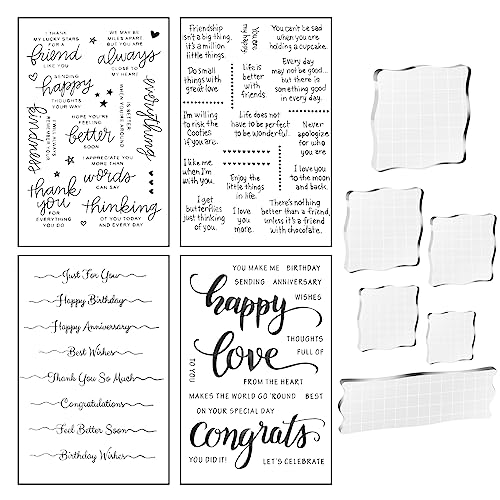 I THANK
MY LUCKY STARS
FOR A
friend
LIKE YOU
WE MAY BE
MILES APART
BUT YOU ARE
always
CLOSE TO
MY HEART
SENDING
happy
THOUGHTS
YOUR WAY
everything
WHEN YOU'RE AROUND
kindness
HOPE YOU'RE
FEELING
better
SOON
I APPRECIATE YOU
MORE THAN
words
CAN SAY
thank
you
FOR
EVERYTHING
YOU DO
thinking
OF YOU TODAY
AND EVERY DAY
friendship
isn't a big thing,
it's a million
little things.
You are
my happy
You can't be sad
when you are
holding a cupcake.
Do small
things with
great love.
Life is
better
with
friends
Every day
may not be good...
but there is
something good
in every day.
I'm willing
to risk the
Cooties
if you are.
Life does not
have to be perfect
to be wonderful.
Never
apologize
for who
you are.
I like me
when I'm
with you.
Enjoy the
little things
in life.
I love you
to the moon
and back.
I get
butterflies
just thinking
of you.
I love
you
more.
There's nothing
better than a friend,
unless it's a friend
with chocolate.
Just For You
Happy Birthday
Happy Anniversary
Best Wishes
Thank You So Much
Congratulations
Feel Better Soon
Birthday Wishes
YOU MAKE ME BIRTHDAY
SENDING ANNIVERSARY
happy
WISHES
THOUGHTS
FULL OF
love
TO YOU
FROM THE HEART
MAKES THE WORLD GO 'ROUND BEST
ON YOUR SPECIAL DAY
Congrats
YOU DID IT! LET'S CELEBRATE